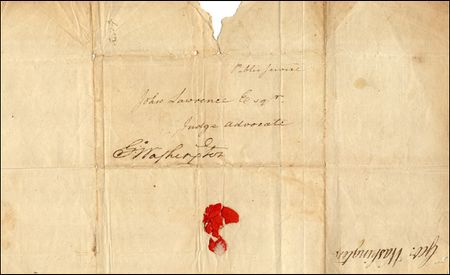 Public Service
John Lawrence Esqr.
Judge Advocate
Go Washington
Gen: Washington